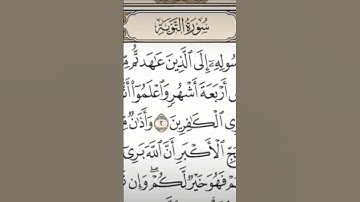 سُورَةُ التَّوْبَةِ
سُولِهِۦٓ إِلَى ٱلَّذِينَ عَٰهَدتُّم
أَرْبَعَةَ أَشْهُرٍ وَٱعْلَمُوٓا۟
ٱلْكَٰفِرِينَ ٢ وَأَذَٰنٌ
ٱلْأَكْبَرِ أَنَّ ٱللَّهَ بَرِىٓ
فَهُوَ خَيْرٌ لَّكُمْ ۖ وَإِن